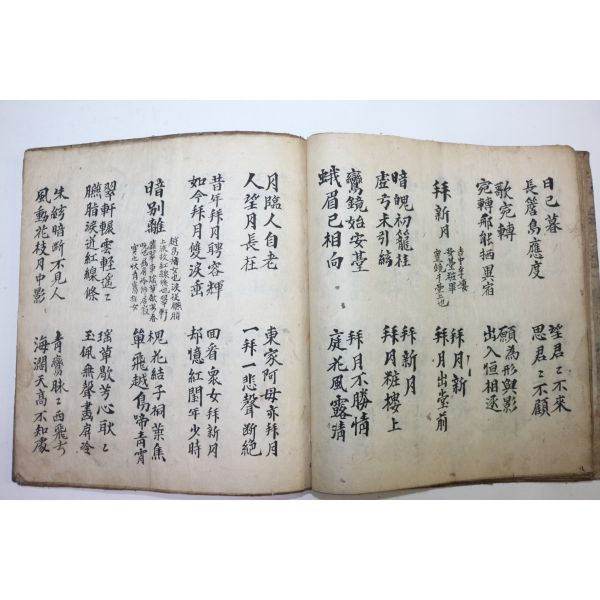 日已暮 望君〻不來
長簷鳥應度 思君〻不顧
歌宛轉 願為形與影
宛轉那能栖異宿 出入恒相逐
拜新月 吉中孚妻 拜新月
拜月出堂前
暗魄初籠桂 拜新月
虛弓未引絃 拜月粧樓上
鸞鏡始安臺 拜月不勝情
蛾眉已相向 庭花風露清
月臨人自老 東家阿母亦拜月
人望月長在 一拜一悲聲断絶
昔年拜月騁容輝 回看衆女拜新月
如今拜月雙淚垂 却憶紅閨年少時
暗別離 槐花結子桐葉焦
單飛越鳥啼青霄
翠軒輾雲輕遥〻 瑶草歇芳心耿〻
臙脂淚迸紅線條 玉佩無聲畵屏冷
朱絃暗断不見人 青鸞脉〻西飛去
風動花枝月中影 海濶天高不知處